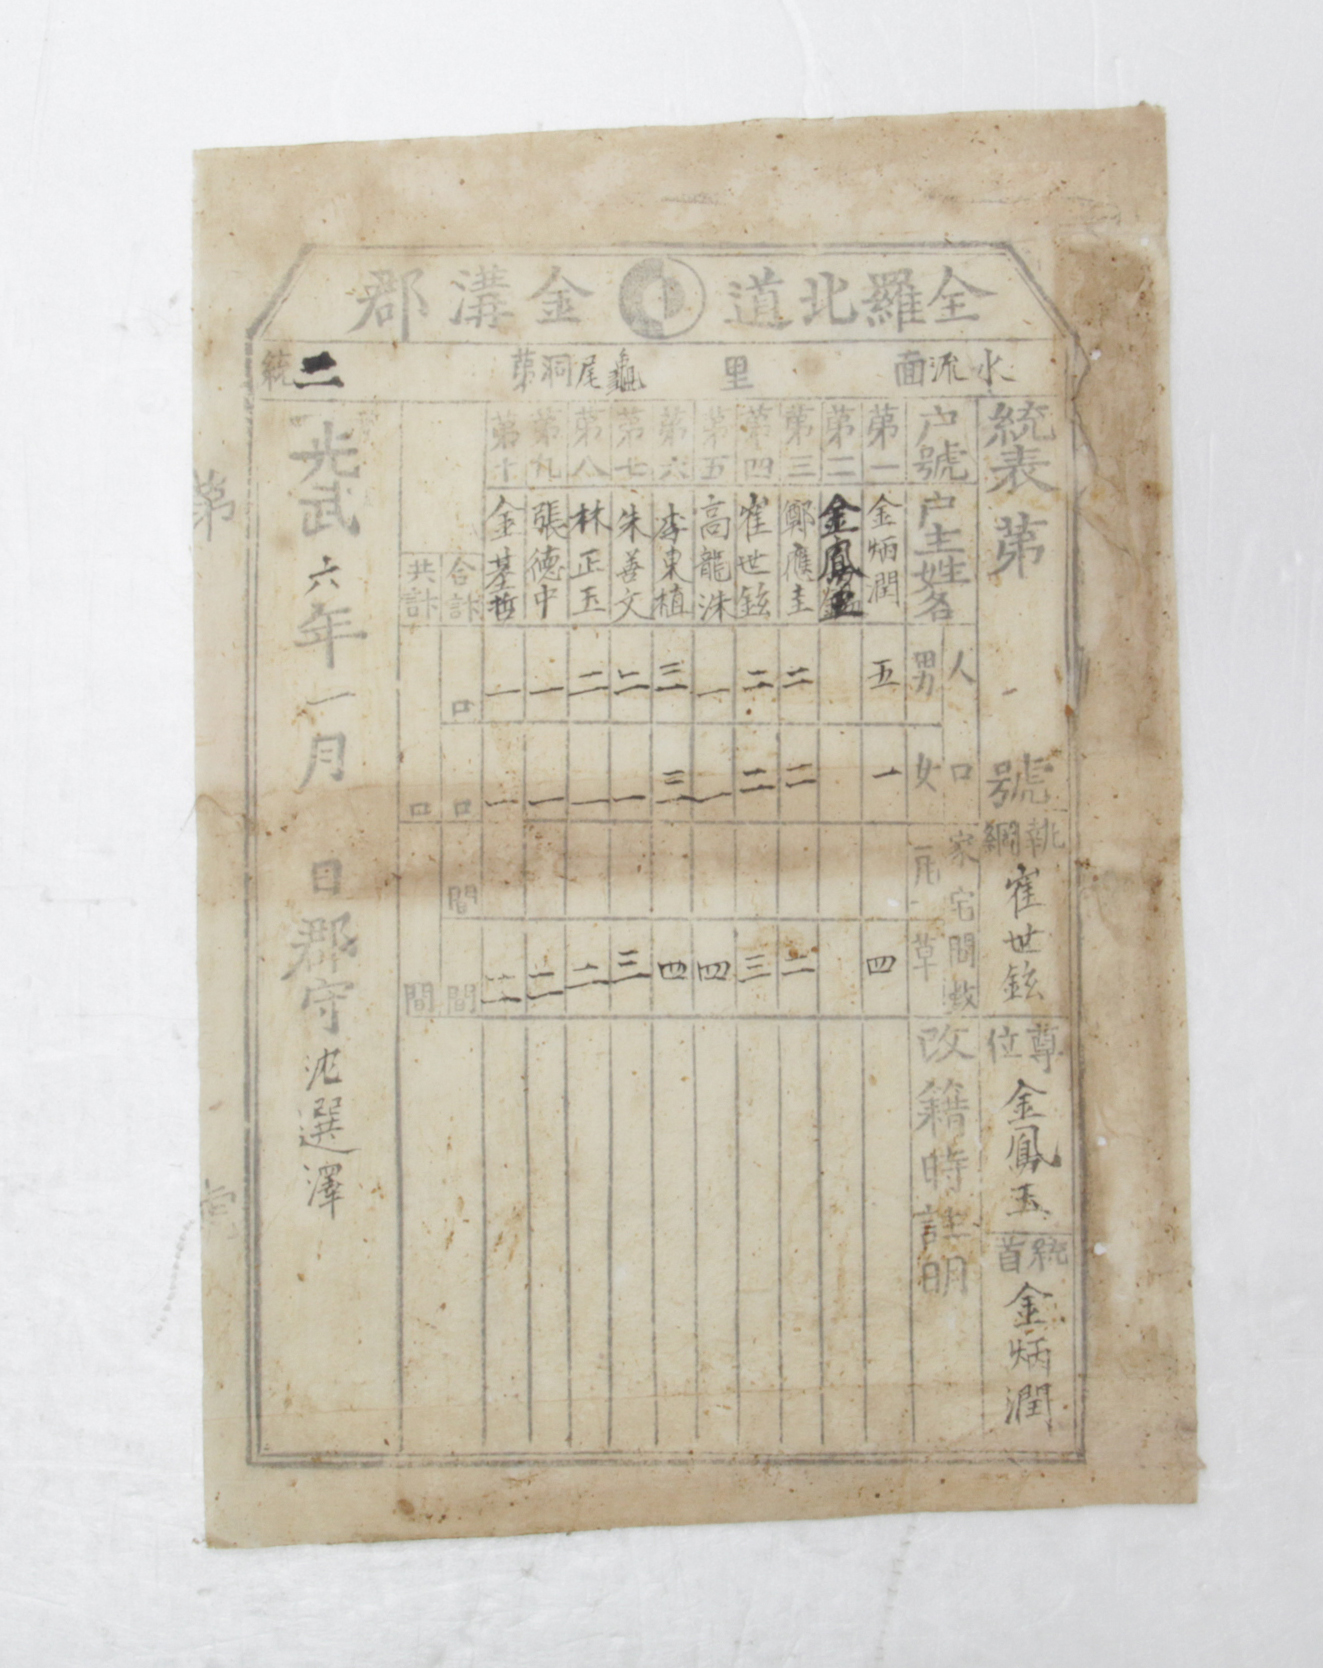 全羅北道 金溝郡
水流面 里 龜尾洞第二統
統表 第 號
執綱 崔世鉉
尊位 金鳳玉
統首 金炳潤
戶號 戶主姓名 人口 男 女 家宅間數 瓦 草 改籍時註明
第一 金炳潤 五 一 四
第二 金鳳玉
第三 鄭應圭 二 二 二
第四 崔世鉉 二 二 三
第五 高龍洙 一 一 四
第六 李東植 三 三 四
第七 朱善文 二 一 三
第八 林正玉 二 一 二
第九 張德中 一 一 二
第十 金基哲 一 一 二
合計 口 口 間 間
共計 口 間
光武六年一月 日郡守 沈選澤
第